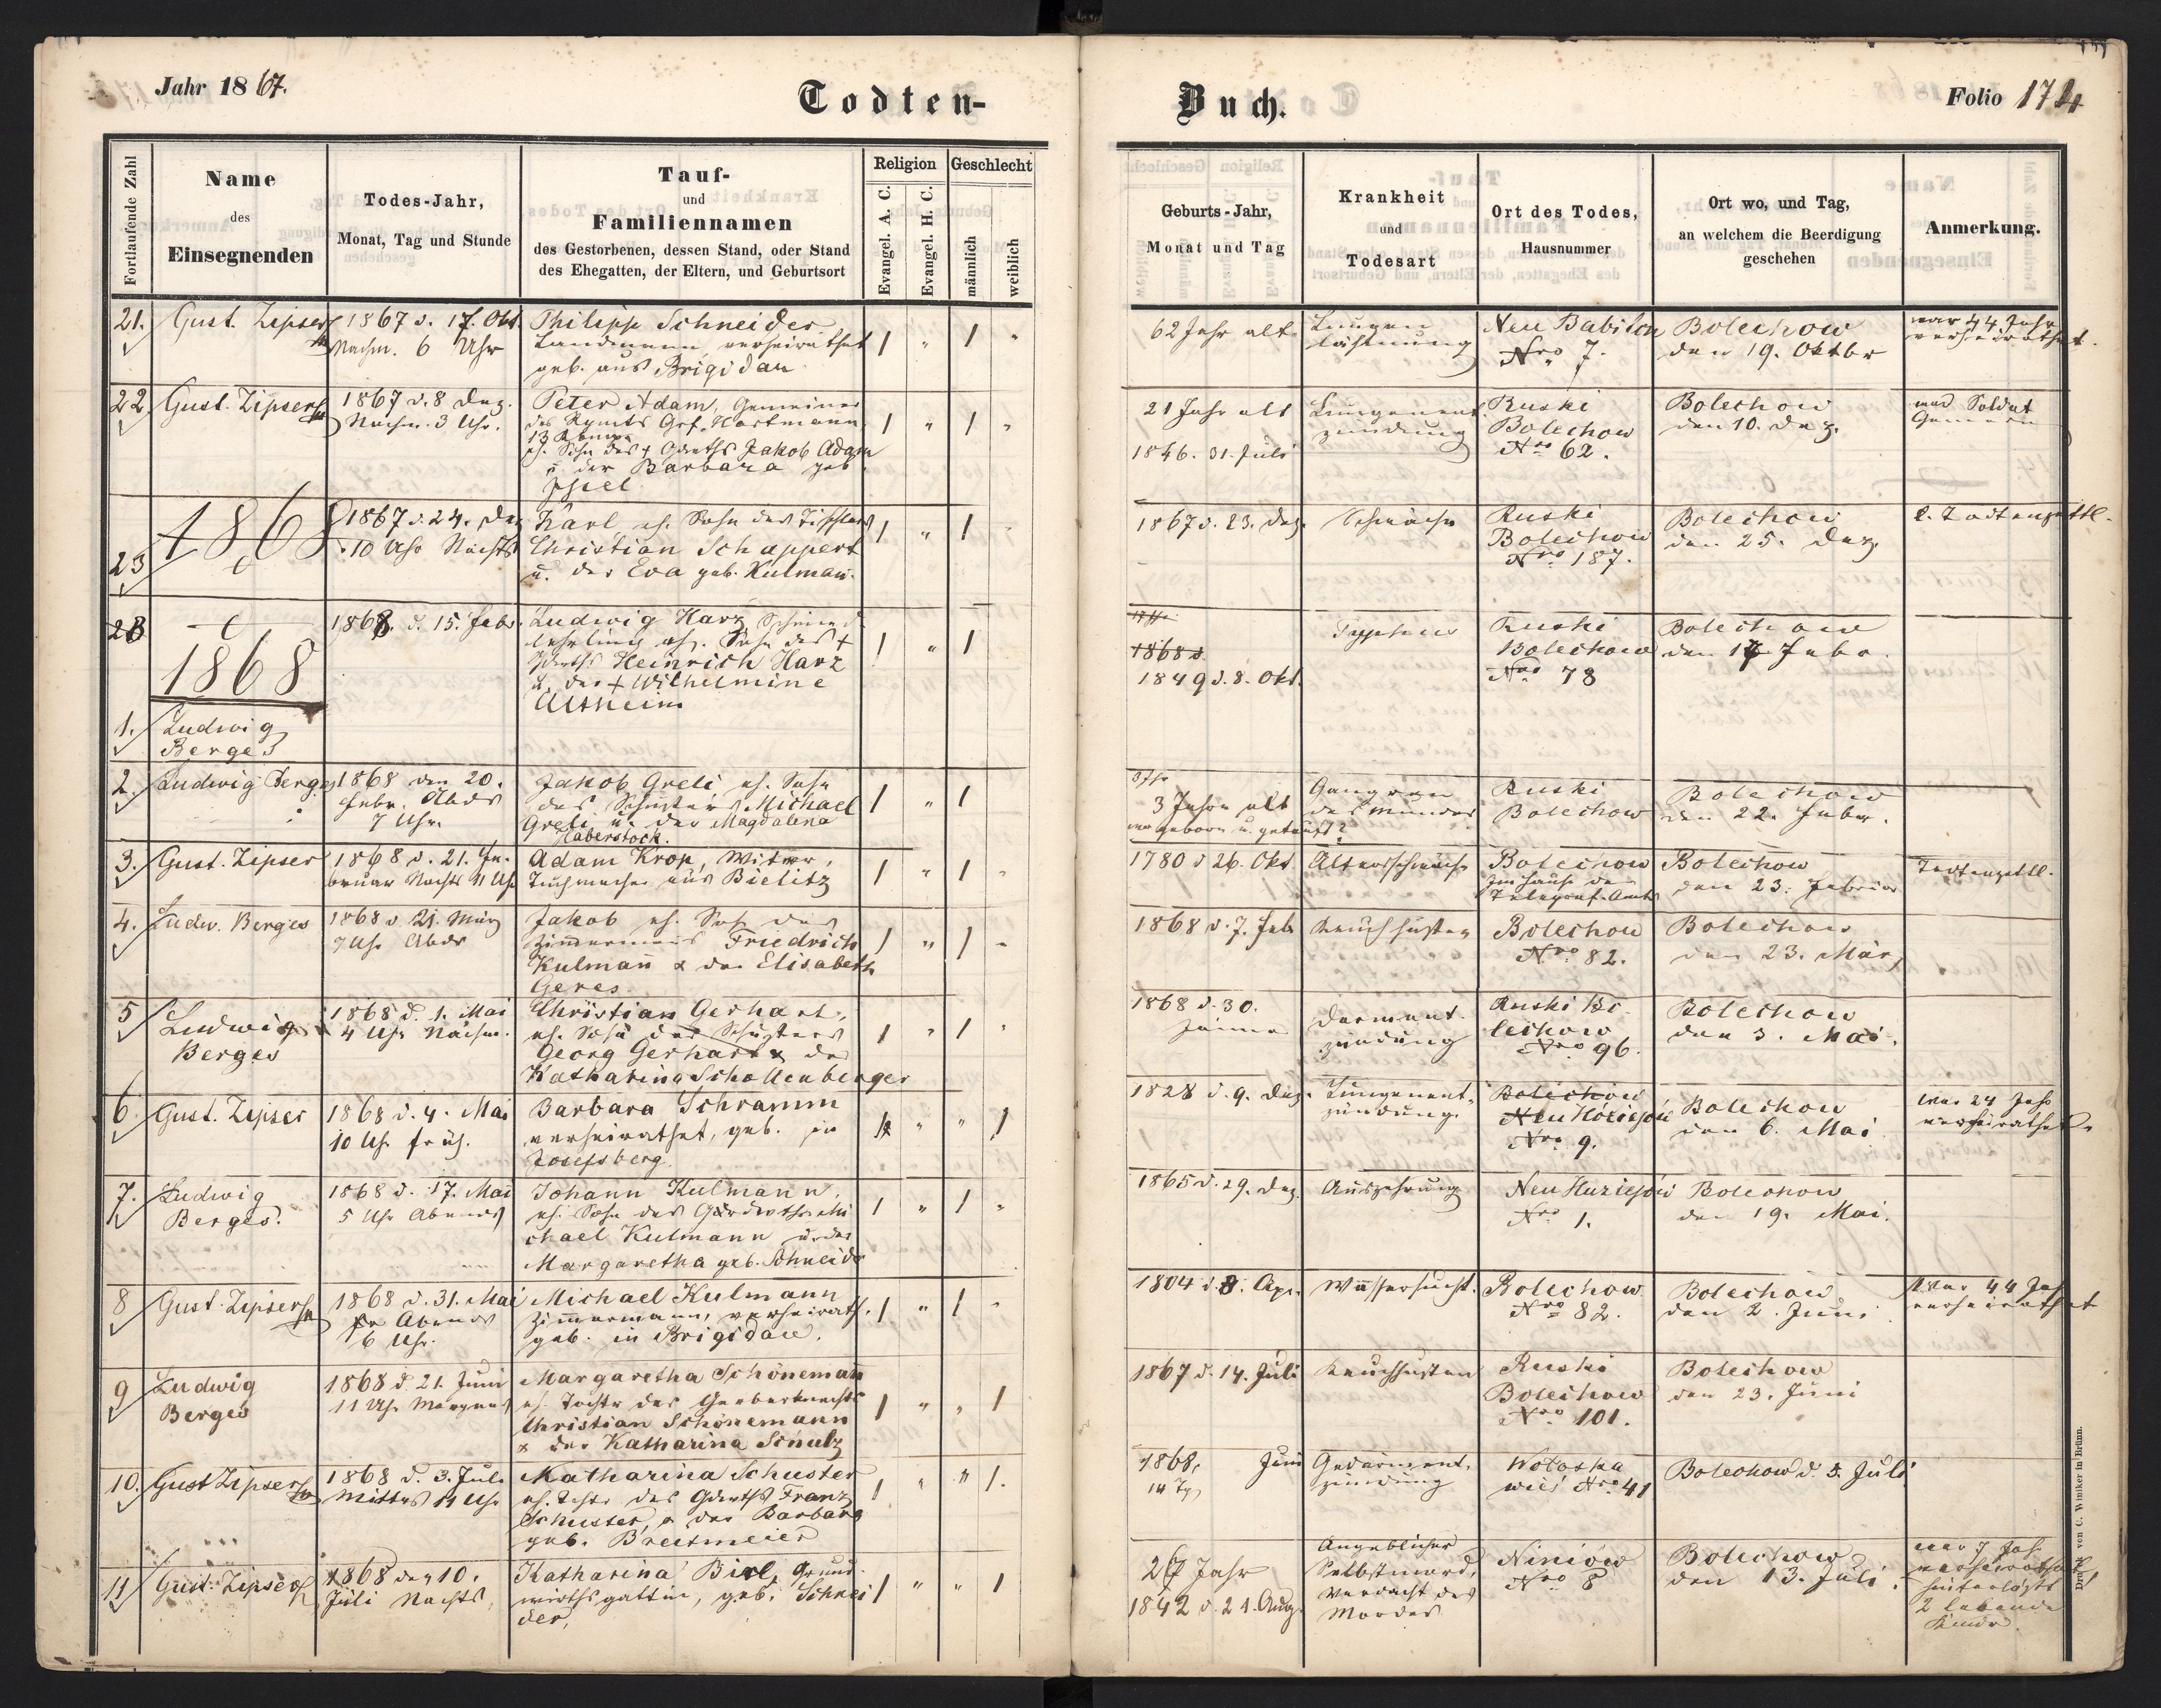 Jahr 1867.
Todten-
Fortlaufende Zahl
Name
des
Einsegnenden
Todes-Jahr,
Monat, Tag und Stunde
Tauf-
und
Familiennamen
des Gestorbenen, dessen Stand, oder Stand
des Ehegatten, der Eltern, und Geburtsort
Religion
Evangel. A. C.
Evangel. H. C.
Geschlecht
männlich
weiblich
Buch.
Folio 174
Geburts-Jahr,
Monat und Tag
Krankheit
und
Todesart
Ort des Todes,
Hausnummer
Ort wo, und Tag,
an welchem die Beerdigung
geschehen
Anmerkung.
21.
Gust. Zipser
1867 d. 17. Okt.
Nachm. 6 Uhr
Philipp Schneider
Landmann verheirathet
geb. aus Brigidau
62 Jahr alt
Lungen
lähmung
Neu Babilon
Nro 7.
Bolechow
den 19. Oktbr
war 44 Jahr
verheirathet.
22.
Gust. Zipser
1867 d. 8 Dez.
Nachm. 3 Uhr.
Peter Adam, Gemeiner
des Rgmts Grf. Hartmann
eh. Sohn des + Gdwths Jakob Adam
u. der Barbara geb.
21 Jahr alt
1846. 31. Juli
Lungenent
zündung
Ruski
Bolechow
Nro 62.
Bolechow
den 10. Dez.
Soldat
1868
23
1867 d. 24. Dez
10 Uhr Nachts
Karl eh. Sohn des Tischlers
Christian Schappert
u. der Eva geb. Kulman.
1867 d. 23. Dez.
Schwäche
Ruski
Bolechow
Nro 187.
Bolechow
den 25. Dez.
1868
1868. d. 15. Febr
Ludwig Harz, Schmied
lehrling eh. Sohn des +
Gdwths Heinrich Harz
u. der + Wilhelmine
Altheim
1868 d.
1849 d. 8. Okt.
Typhus
Ruski
Bolechow
Nro 78
Bolechow
den 17 Febr.
1.
Ludwig
Berges
2.
Ludwig Berges
1868 den 20.
Febr. Abds
7 Uhr.
Jakob Greli, eh. Sohn
des Schusters Michael
Greli u. der Magdalena
Haberstock.
3 Jahre alt
wo geboren u. getauft?
Gangren
des Mundes
Ruski
Bolechow
Bolechow
den 22. Febr.
3.
Gust. Zipser
1868 d. 21. Fe-
bruar Nachts 11 Uhr
Adam Krop, Witwer,
Tuchmacher aus Bielitz
1780 d 26. Okt
Altersschwäche
Bolechow
im Hause des
Telegraf. Amts
Bolechow
den 23. Februar
Todtenzettl.
4.
Ludw. Berges
1868 d 21. März
7 Uhr Abds
Jakob eh. Sohn des
Zimmermans Friedrich
Kulmañ & der Elisabeth
Geres.
1868 d. 7. Feb
Keuchhusten
Bolechow
Nro 82.
Bolechow
den 23. März
5
Ludwig
Berges
1868 d. 1. Mai
4 Uhr Nachm.
Christian Gerhart,
eh. Sohn des Schusters
Georg Gerhart & der
Katharina Schollenberger
1868 d. 30.
Jänner
Darment-
zündung
Ruski Bo-
lechow
Nro 96.
Bolechow
den 3. Mai.
6.
Gust. Zipser
1868 d. 4. Mai
10 Uhr früh.
Barbara Schramm
verheirathet, geb. in
Josefsberg.
1828 d. 9. Dez.
Lungenent-
zündung.
Bolechow
Nro 9.
Bolechow
den 6. Mai
war 24 Jahr
verheirathet.
7.
Ludwig
Berges.
1868 d. 17. Mai
5 Uhr Abends
Johann Kulmann,
eh. Sohn des Grdwths Mi
chael Kulmann u. der
Margaretha geb. Schneider
1865 d. 29. Dez.
Auszehrung
Neu Huziejow
Nro 1.
Bolechow
den 19. Mai.
8
Gust. Zipser
1868 d. 31. Mai
Abends
6 Uhr.
Michael Kulmann
Zimmermann, verheirath.
geb. in Brigidau.
1804 d. 8. Apr.
Wassersucht.
Bolechow
Nro 82.
Bolechow
den 2. Juni
War 44 Jahr
verheirathet
9
Ludwig
Berges
1868 d. 21. Juni
11 Uhr Morgens
Margaretha Schönemañ
eh. Tochter des Gerberknechts
Christian Schönemann
& der Katharina Schulz
1867 d. 14. Juli
Keuchhusten
Ruski
Bolechow
Nro 101.
Bolechow
den 23. Juni
10.
Gust Zipser
1868 d. 3. Juli
Mittags 11 Uhr
Katharina Schuster
eh. Tochter des Gdwths Franz
Schuster, & der Barbara
geb. Breitmeier
1868, Juni
14 Tg
Gedärment-
zündung
Woloska
wieś Nro 41
Bolechow d. 5. Juli
11
Gust. Zipser
1868 den 10.
Juli Nachts,
Katharina Birl, Grund-
wirthsgattin, geb. Schnei
der,
26 Jahr
1842 d. 21. Aug.
Angeblicher
Selbstmord,
Verdacht des
Mordes
Niniów
Nro 8
Bolechow
den 13. Juli.
war 7 Jahr
verheirathet,
hinterlässt
2 lebende
Kinder.
Druck von C. Winiker in Brünn.